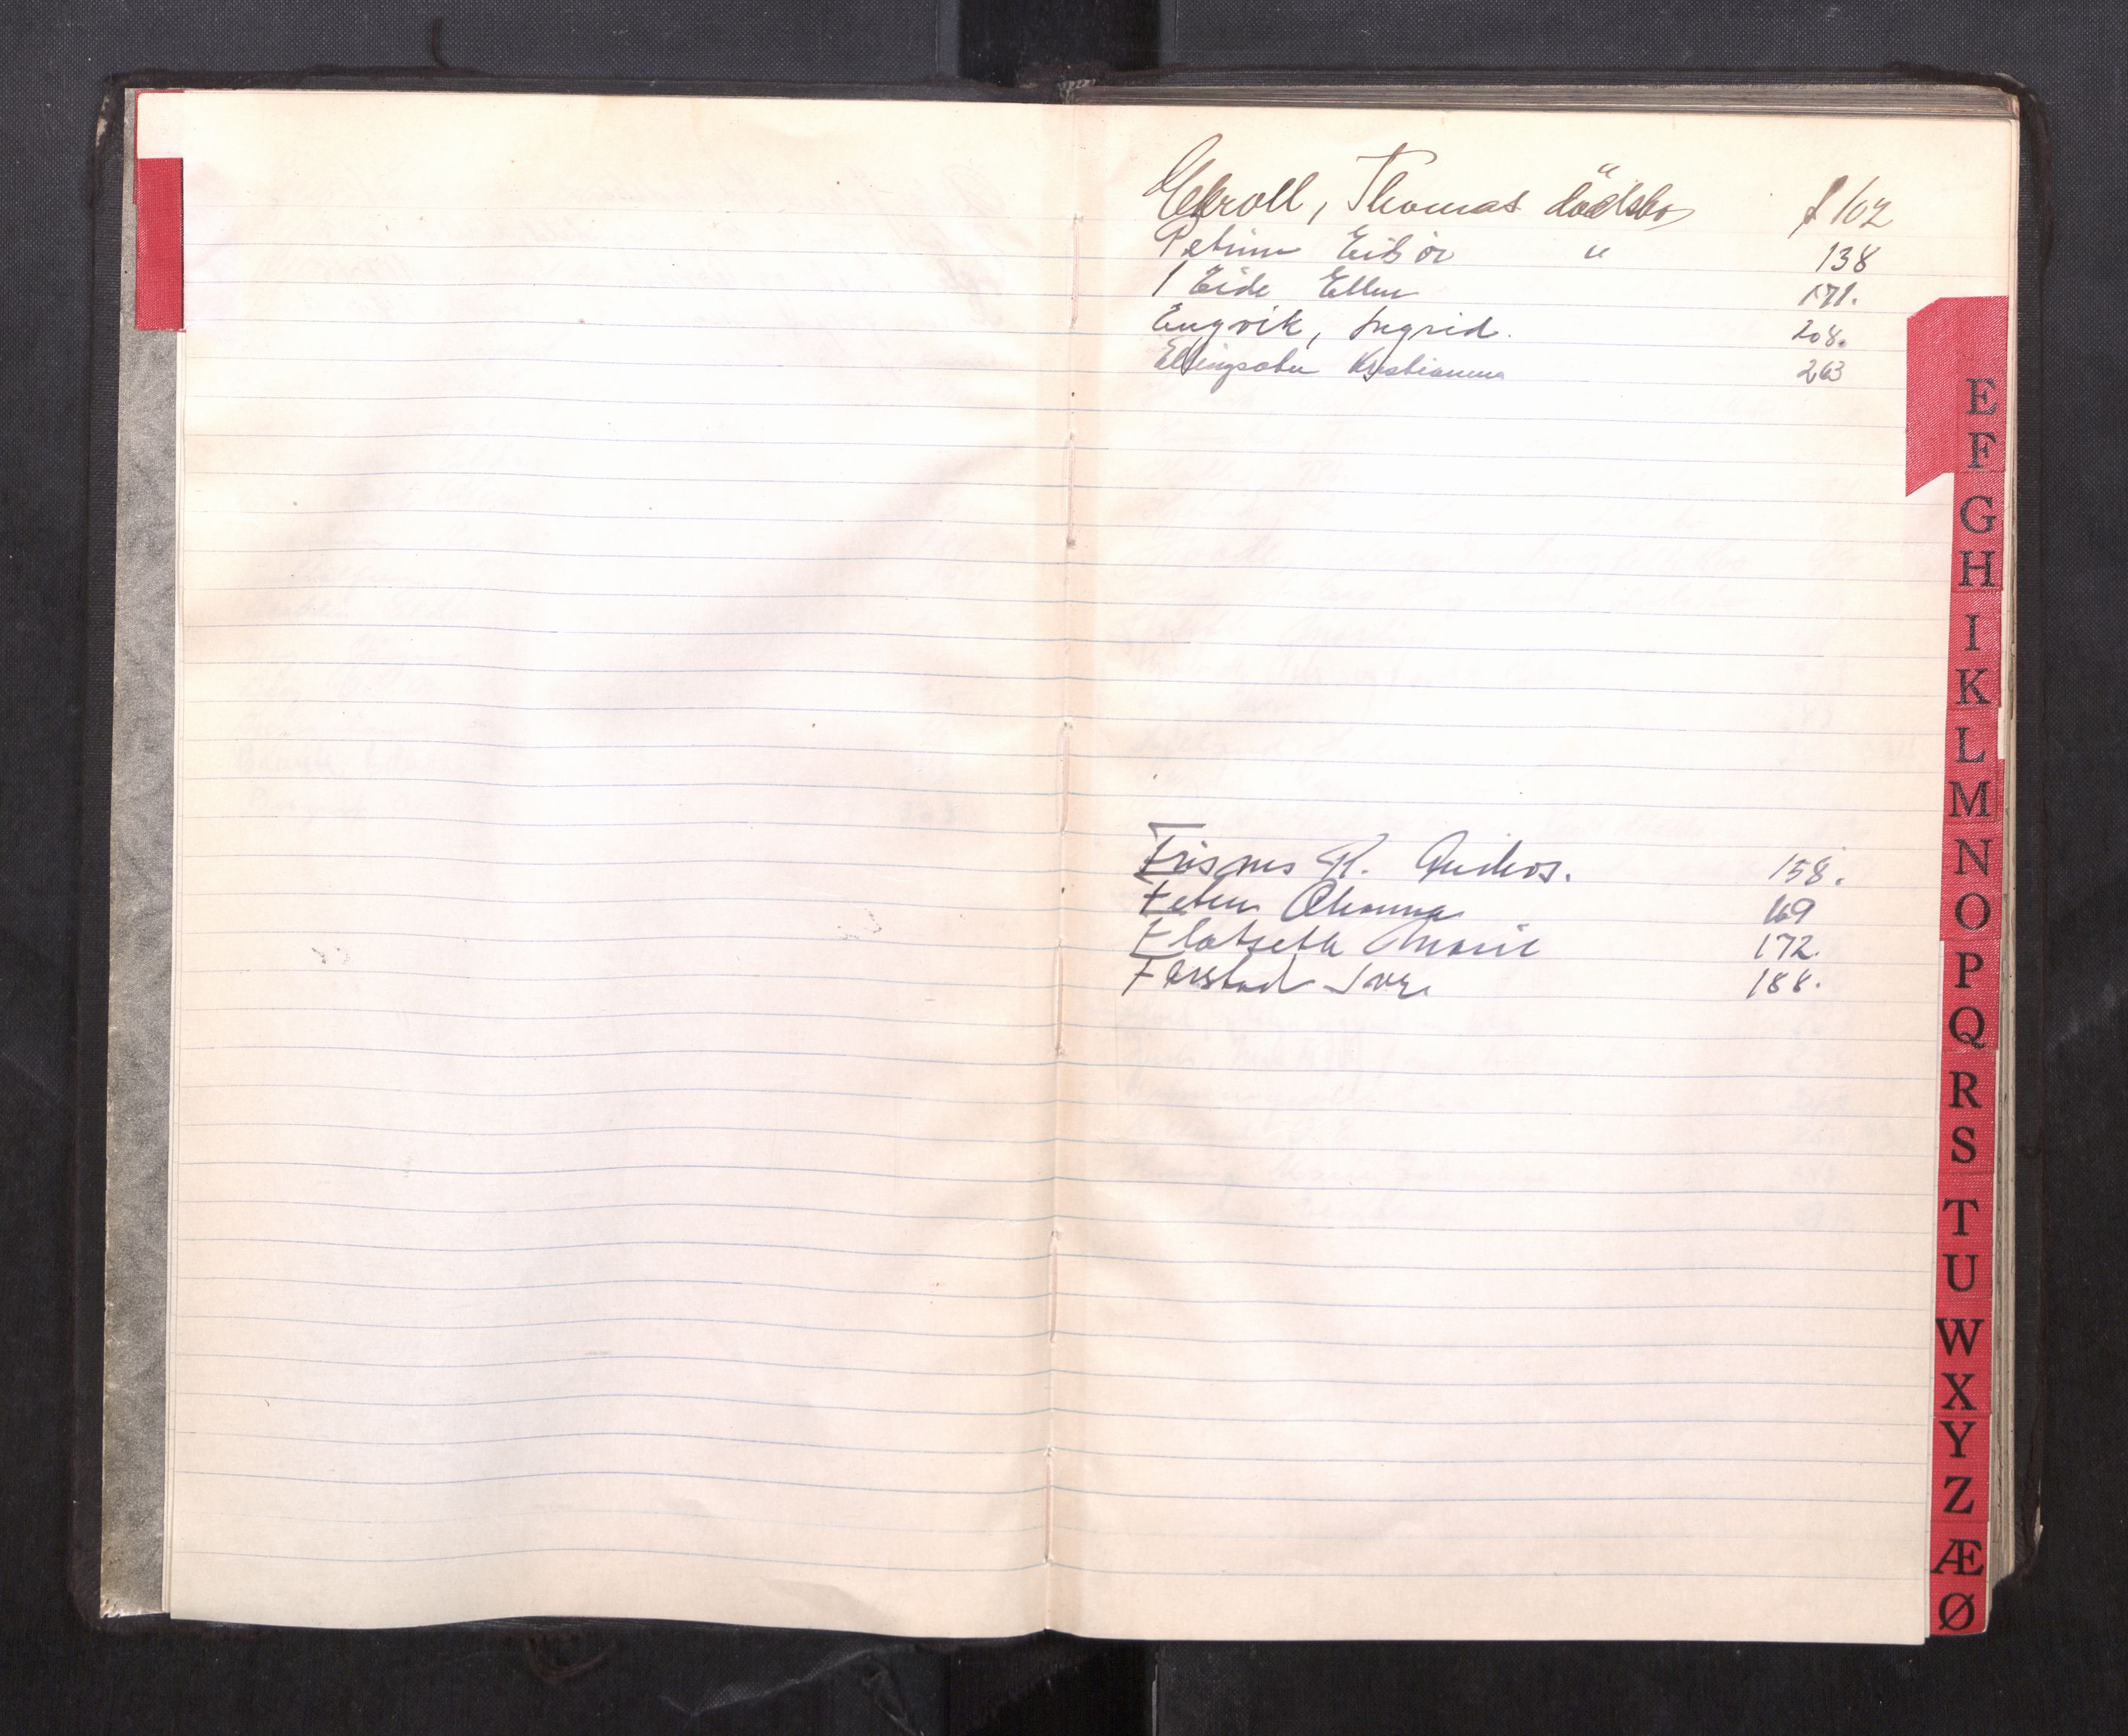 Ekroll, Thomas dödsbo f 102
Petrine Eidsör " 138
Eide Ellen 171.
Engvik, Ingrid. 208.
Ellingsæter Kristianna 263
Frisnes R. 158.
Feten Oleanna 169
Flatseth Marie 172.
Farstad Iver 188.
E
F
G
H
I
K
L
M
N
O
P
Q
R
S
T
U
W
X
Y
Z
Æ
Ø